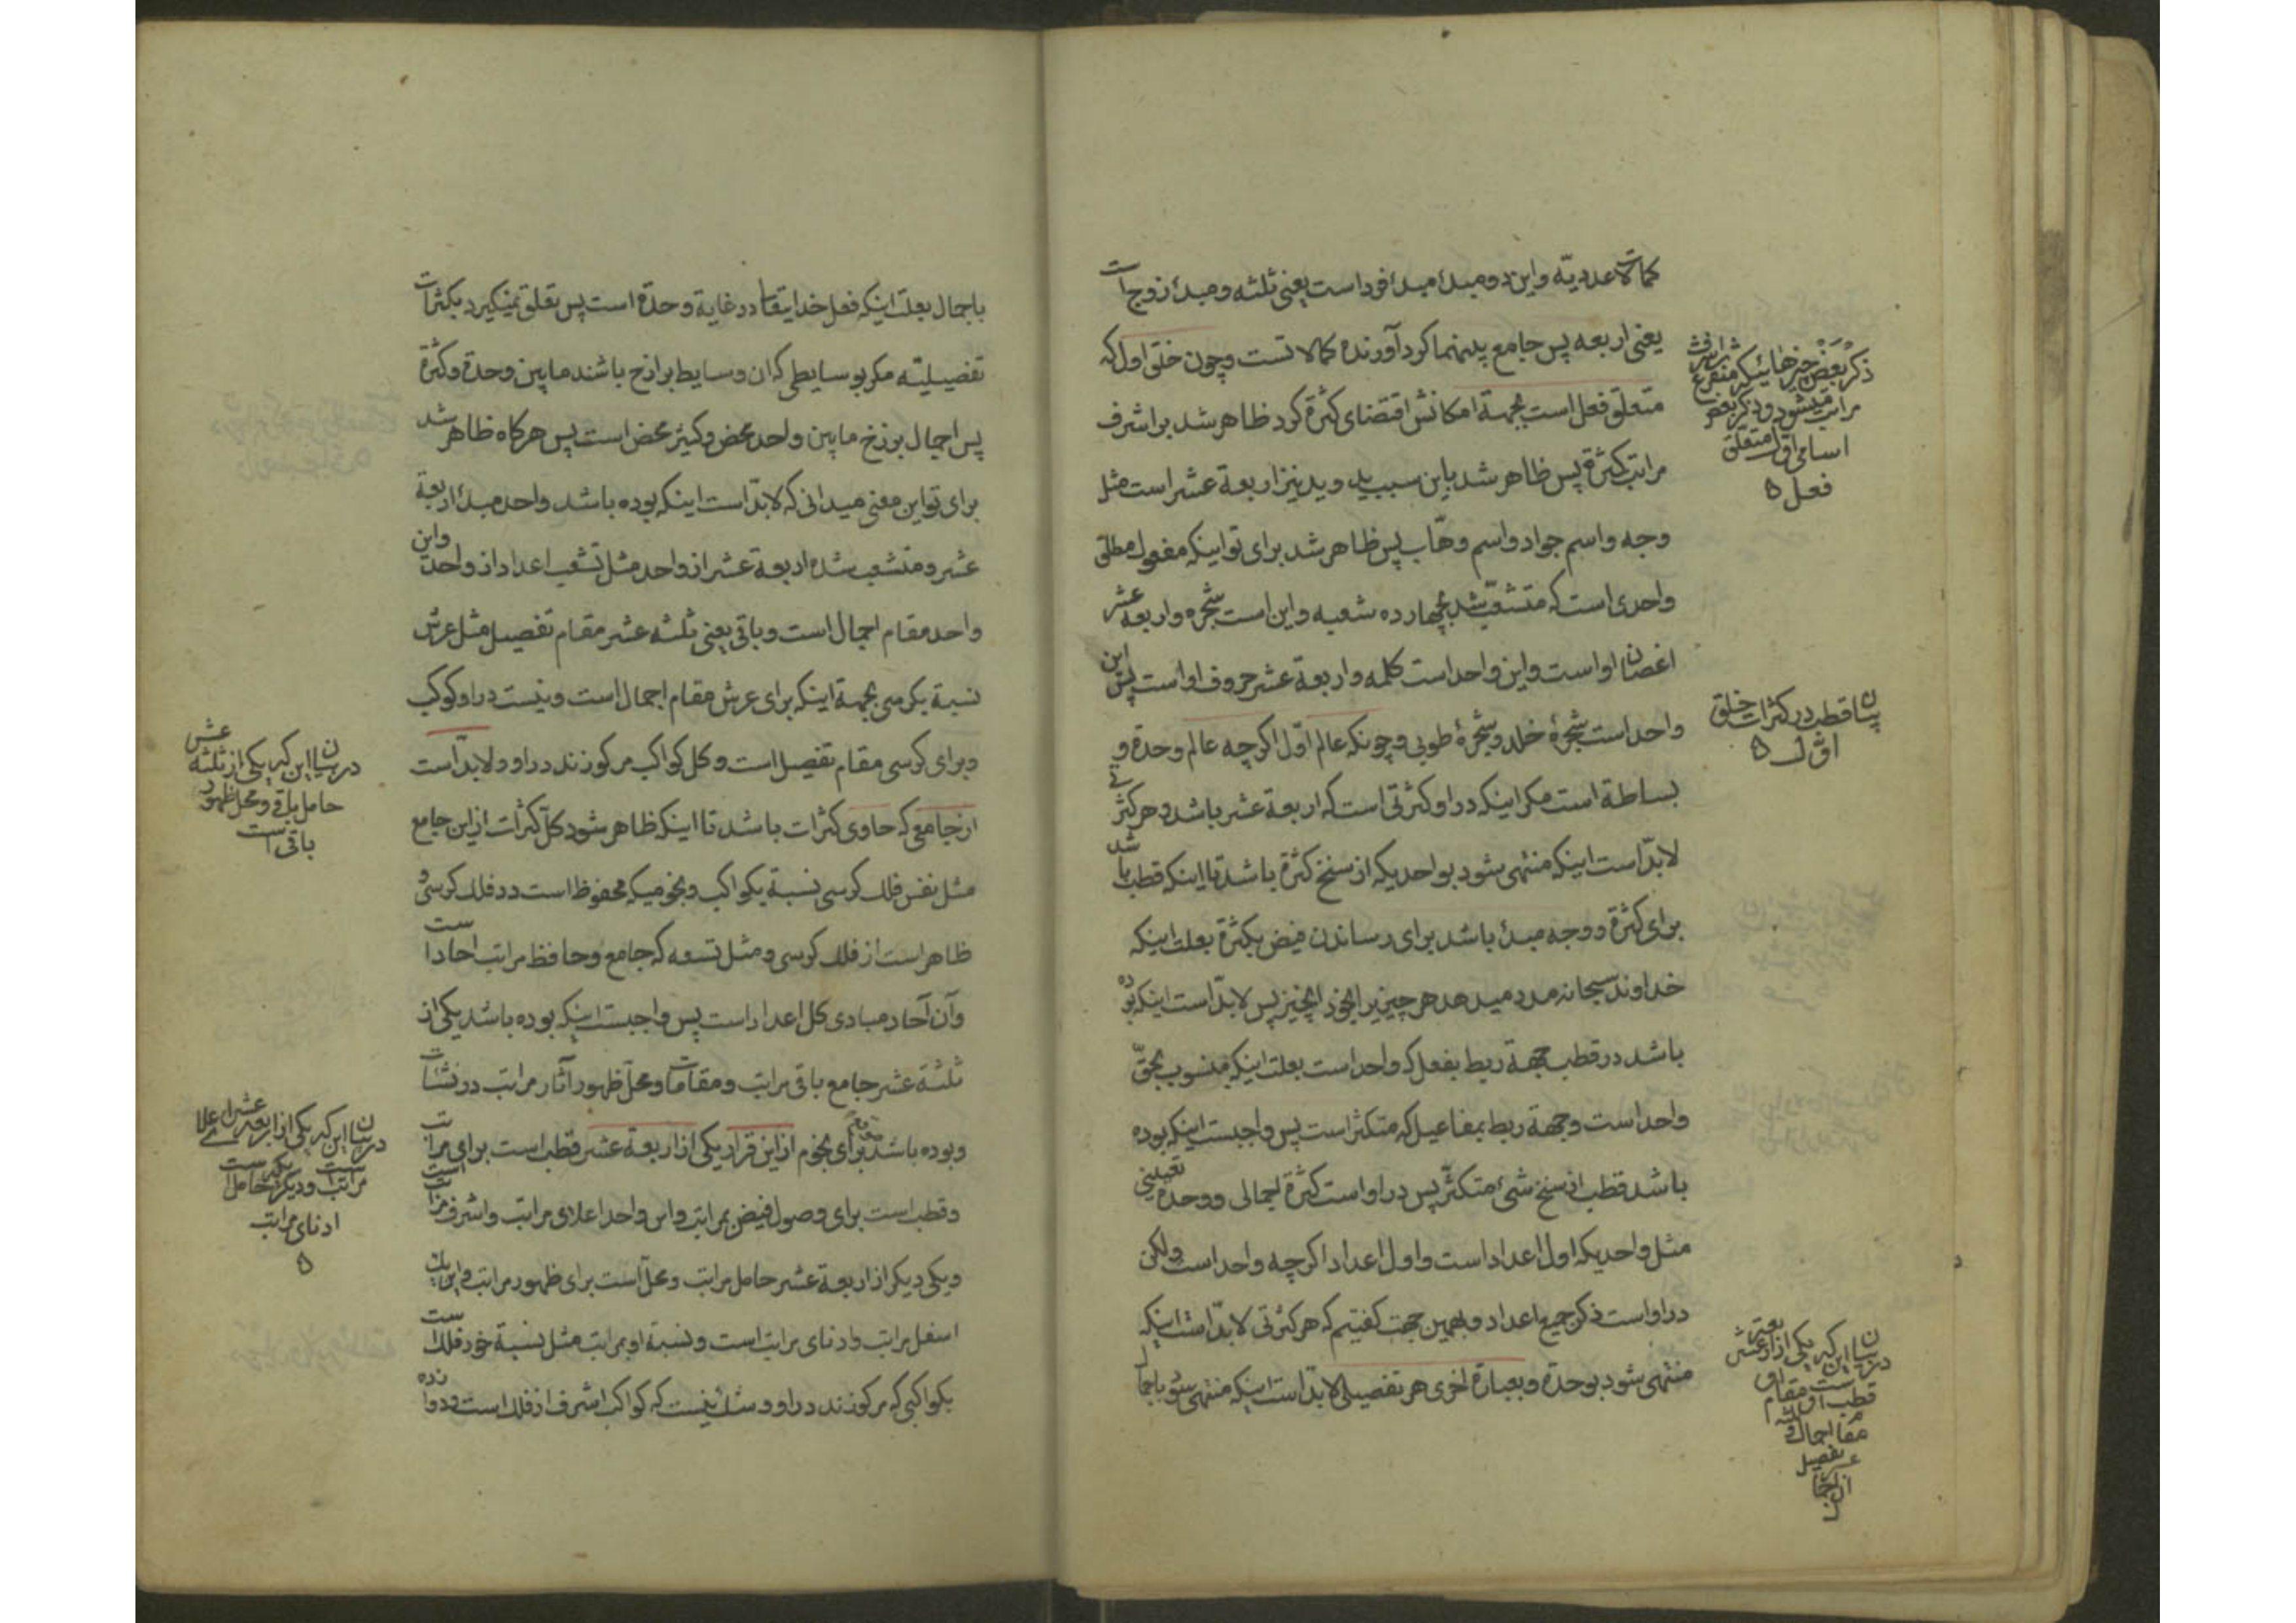 کمالات عددیّه و این دو مبدأ مبدأ افرد است یعنی ثلثه و مبدأ زوج است
یعنی اربعه پس جامع بینهما کرد آورنده کمالاتست و چون خلق اول که
متعلق فعل است بجهة امکانش اقتضای کثرة کرد ظاهر شد بر اشرف
مراتب کثرة پس ظاهر شد باین سبب ید و ید نیز اربعة عشر است مثل
وجه و اسم جواد و اسم وهّاب پس ظاهر شد برای تو اینکه مفعول مطلق
واحدی است که متشعّب شد بچهارده شعبه و این است شجره و اربعة عشر
اغصان او است و این واحد است کلمه و اربعة عشر حروف او است پس این
واحد است شجرهٔ خلد و شجرهٔ طوبی و چونکه عالم اوّل اکرچه عالم وحدة و
بساطة است مکر اینکه در او کثرتی است که اربعة عشر باشد و هر کثرتے
لابدّ است اینکه منتهی شود بواحدیکه از سنخ کثرة باشد تا اینکه قطب باشد
برای کثرة و وجه مبدأ باشد برای رساندن فیض بکثرة بعلت اینکه
خداوند سبحانه مدد میدهد هر چیزیرا بخود انچیز پس لابدّ است اینکه بوده
باشد در قطب جهة ربط بفعل که واحد است بعلت اینکه منسوب بحقّ
واحد است و جهة ربط بمفاعیل که متکثر است پس واجبست اینکه بوده
باشد قطب از سنخ شیء متکثّر پس در او است کثرة اجمالی و وحدة تعیینی
مثل واحدیکه اول اعداد است و اول اعداد اکرچه واحد است ولکن
در او است ذکر جمیع اعداد و بهمین جهت کفتیم که هر کثرتی لابدّ است اینکه
منتهی شود بوحدة و بعبارة اخری هر تفصیلی لابدّ است اینکه منتهی شود باجمال
ذکر بعض چیزهائیکه متفرع
مراتب میشود و ذکر بعض
اسامی اوّل متعلق
فعل ۵
بیان قطب در کثرات خلق
اوّل ۵
در بیان این که یکی از اربعة عشر
قطب است و او مقام
اجمال
تفصیل
باجمال بعلت اینکه فعل خدایتعالی در غایة وحدة است پس تعلق نمیکیرد بکثرات
تفصیلیّه مکر بوسایطی که ان وسایط برازخ باشند مابین وحدة و کثرة
پس اجمال برزخ مابین واحد محض و کثیر محض است پس هرکاه ظاهر شد
برای تو این معنی میدانی که لابدّ است اینکه بوده باشد واحد مبدأ اربعة
عشر و متشعب شده اربعة عشر از واحد مثل تشعب اعداد از واحد و این
واحد مقام اجمال است و باقی یعنی ثلثه عشر مقام تفصیل مثل عرش
نسبة بکرسی بجهة اینکه برای عرش مقام اجمال است و نیست در او کوکب
و برای کرسی مقام تفصیل است و کل کواکب مرکوزند در او و لابدّ است
از جامعی که حاوی کثرات باشد تا اینکه ظاهر شود کلّ کثرات از این جامع
مثل نفس فلک کرسی نسبة بکواکب و نجومیکه محفوظ است در فلک کرسی و
ظاهر است از فلک کرسی و مثل تسعه که جامع و حافظ مراتب احاد است
و آن آحاد مبادی کل اعداد است پس واجبست اینکه بوده باشد یکی از
ثلثة عشر جامع باقی مراتب و مقامات و محلّ ظهور آثار مراتب در نشئات
و بوده باشد برای نجوم از این قرار یکی از اربعة عشر قطب است برای مراتب
و قطب است برای وصول فیض بمراتب و این واحد اعلای مراتب و اشرف مراتب است
و یکی دیکر از اربعة عشر حامل مراتب و محلّ است برای ظهور مراتب و این یک
اسفل مراتب و ادنای مراتب است و نسبة او بمراتب مثل نسبة خود فلک است
بکواکبی که مرکوزند در او و شک نیست که کواکب اشرف از فلک است و دوازده
در بیان این که یکی از ثلثه عشر
حامل باقی و محل ظهور
باقی است
در بیان این که یکی از اربعه عشر اعلای
مراتب است و یکی دیکر حامل است
ادنای مراتب
۵